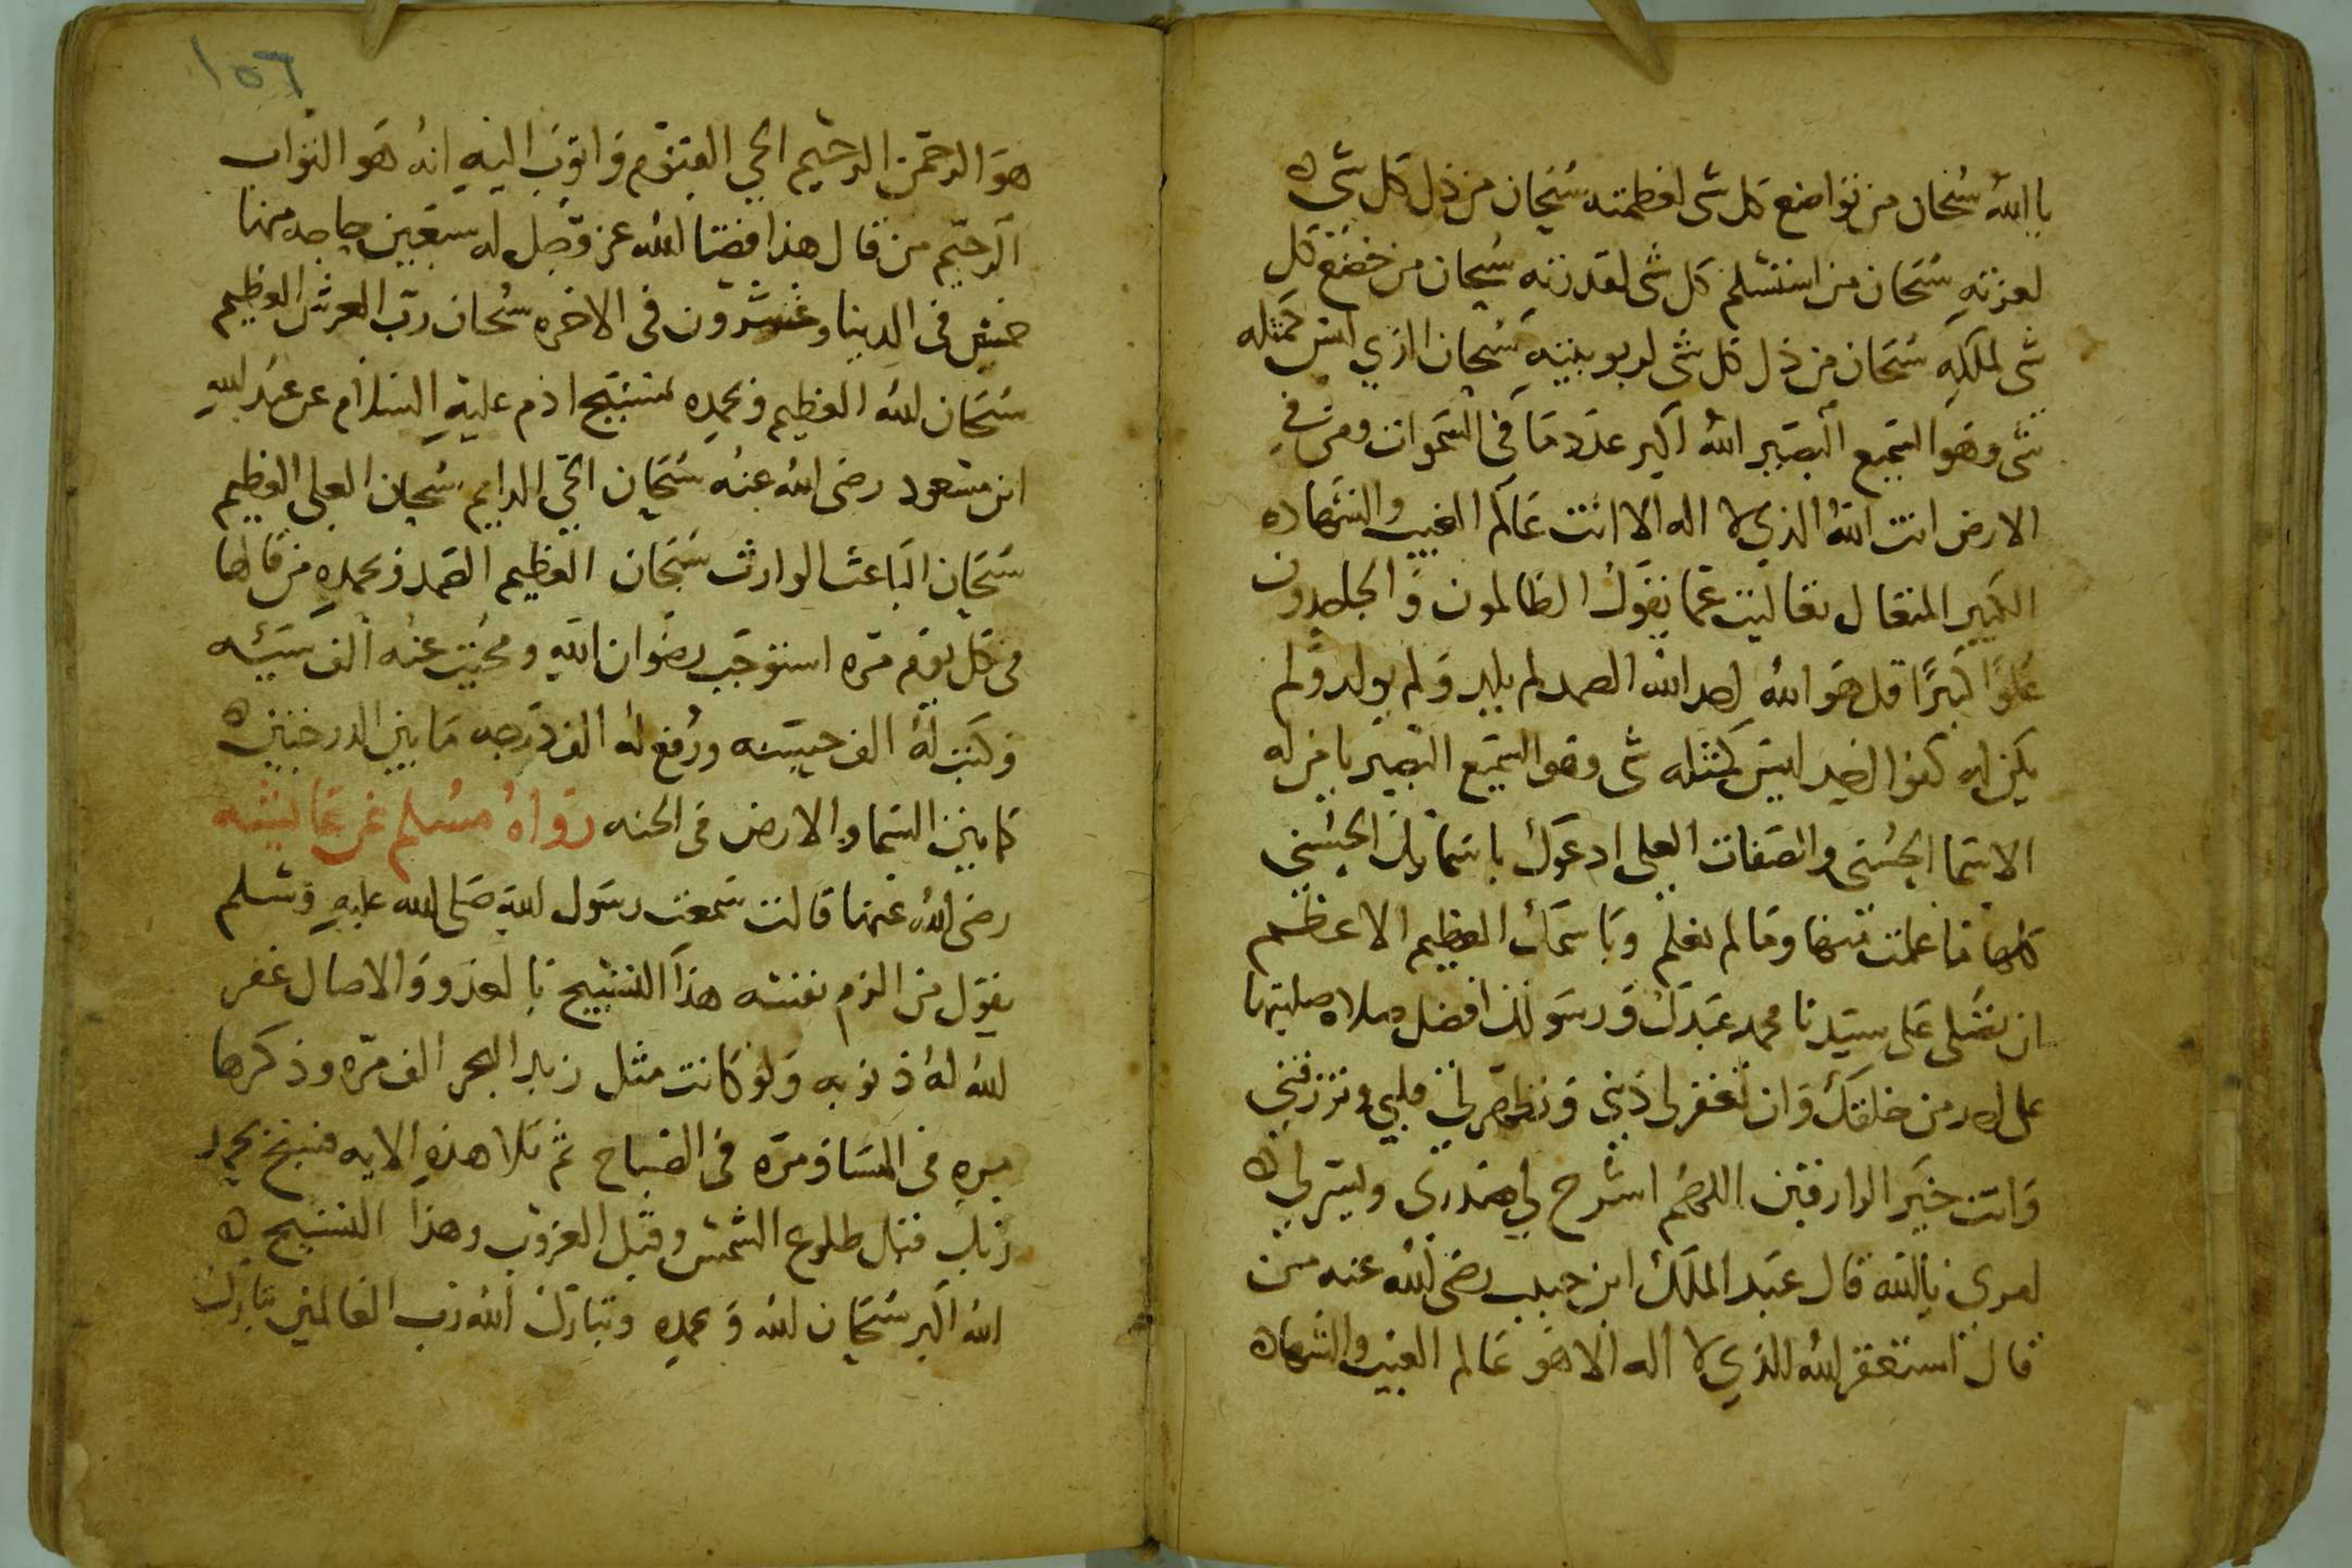 يا الله سُبحان من تواضع كل شى لعظمته سُبحان من ذل كل شى ه
لعزته سُبحان من استسلم كل شى لقدرته سُبحان من خضع كل
شى لملكه سُبحان من ذل كل شى لربوبيته سُبحان الذي ليس كمثله
شى وهو السميع البصير الله اكبر عدد ما في السموات ومن في
الارض انت الله الذي لا اله الا انت عالم الغيب والشهاده
الكبير المتعال تعاليت عما يقول الظالمون والجاحدون
علوًا كبيرًا قل هو الله احد الله الصمد لم يلد ولم يولد ولم
يكن له كفوا احد ليس كمثله شى وهو السميع البصير يا من له
الاسما الحسنى والصفات العلى ادعوك باسمايك الحسنى
كلها ما علمت منها وما لم نعلم وباسمك العظيم الاعظم
ان تصلى على سيدنا محمد عبدك ورسولك افضل صلاه صليتها
على احد من خلقك وان تغفر لى ذنبي وتطهر لي قلبي وترزقني
وانت خير الرازقين اللهم اشرح لي صدرى ويسر لي ه
امري يا الله قال عبد الملك ابن حبيب رضى الله عنه من
قال استغفر الله الذي لا اله الا هو عالم الغيب والشهاده
١٥٦
هو الرحمن الرحيم الحي القيوم واتوب اليه انه هو التواب
الرحيم من قال هذا قضا الله عز وجل له سبعين حاجه منها
خمسين في الدينا وعشرون في الاخره سُبحان رب العرش العظيم
سُبحان الله العظيم وبحمده تسبيح ادم عليه السلام عن عبد الله
ابن مسعود رضى الله عنه سُبحان الحي الدايم سُبحان العلى العظيم
سُبحان الباعث الوارث سُبحان العظيم الصمد وبحمده من قالها
فى كل يوم مره استوجب رضوان الله ومحيت عنه الف سيئه
وكتب له الف حسنه ورُفع له الف درجه ما بين الدرجتين ه
كما بين السما والارض فى الجنه رواهُ مسُلم عن عايشه
رضى الله عنها قالت سمعت رسول الله صلى الله عليه وسلم
يقول من الزم نفسه هذا التسبيح بالغدو والاصال غفر
الله له ذنوبه ولو كانت مثل زبد البحر الف مره وذكرها
مره فى المسا ومره فى الصباح ثم تلا هذه الايه فسبح بحمد
ربك قبل طلوع الشمس وقبل الغروب وهذا التسبيح ه
الله اكبر سُبحان الله وبحمده وتبارك الله رب العالمين تبارك